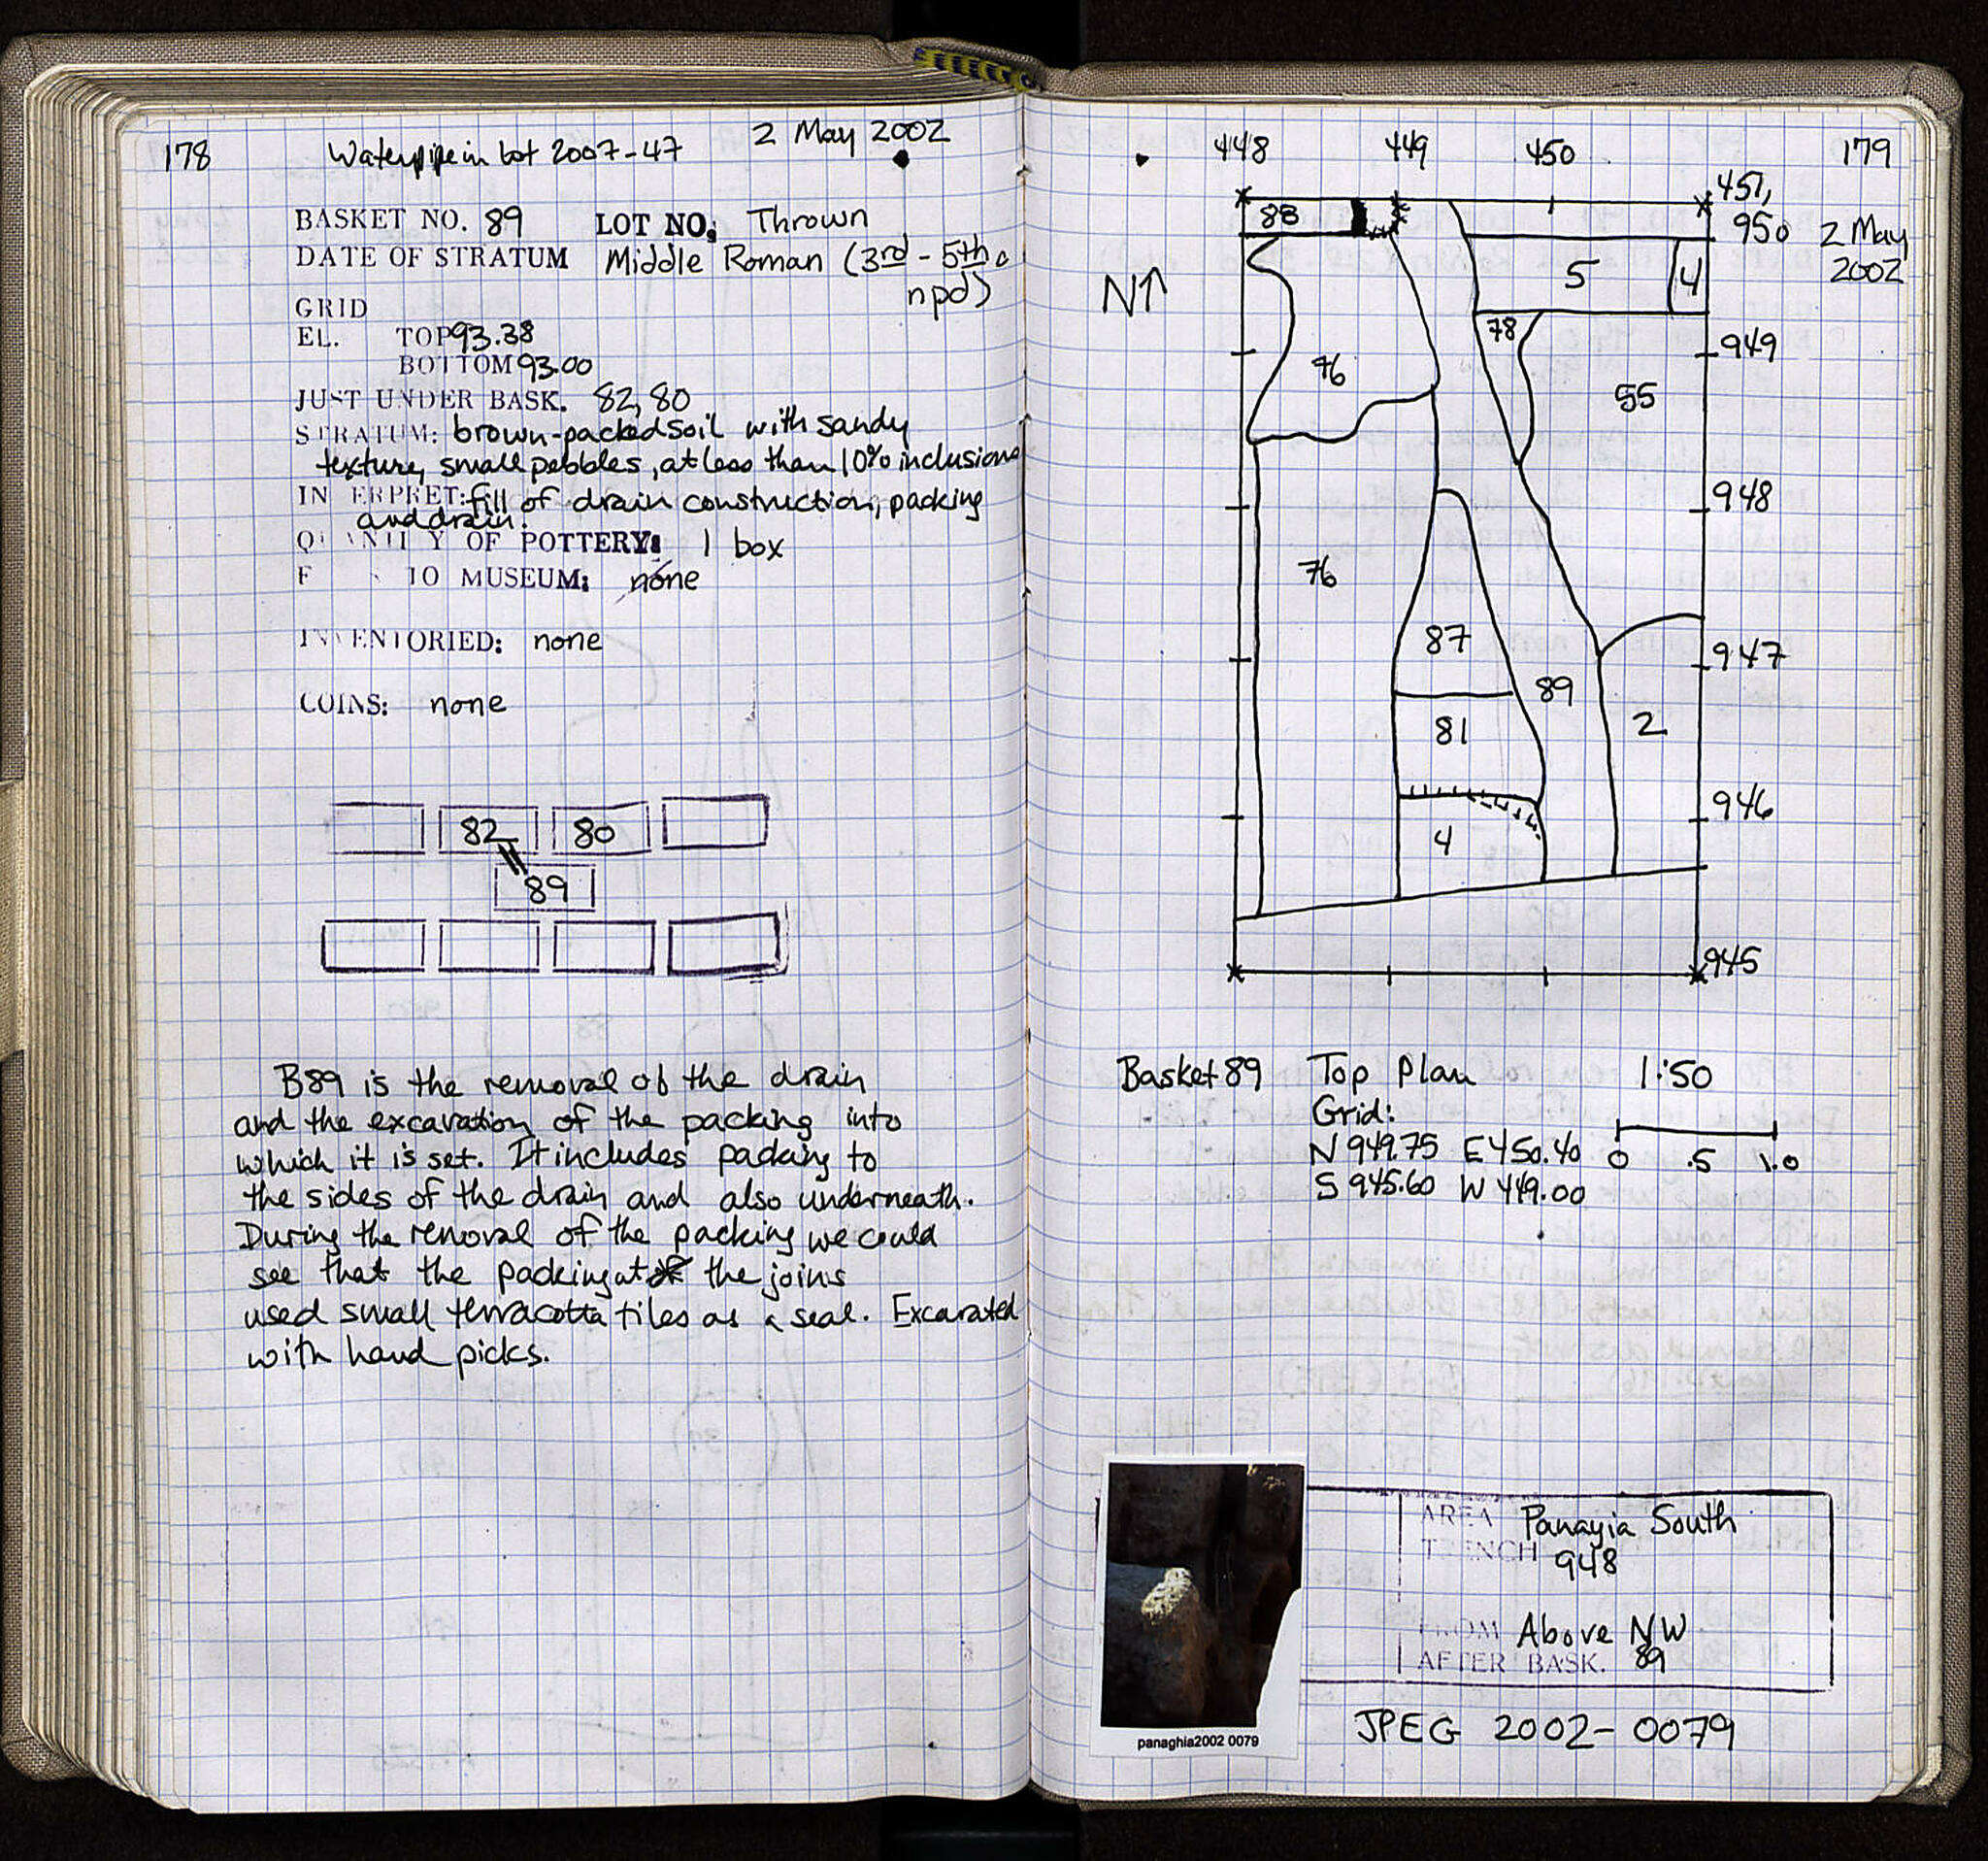 178
Waterpipe in lot 2007-47
2 May 2002
BASKET NO. 89 LOT NO. Thrown
DATE OF STRATUM Middle Roman (3rd - 5th c
npd)
GRID
EL. TOP 93.38
BOTTOM 93.00
JUST UNDER BASK. 82, 80
STRATUM: brown-packed soil with sandy
texture, small pebbles, at less than 10% inclusions
IN ERPRET: fill of drain construction, packing
and drain.
QUANTITY OF POTTERY: 1 box
TO MUSEUM: none
INVENTORIED: none
COINS: none
82 80
89
B89 is the removal of the drain
and the excavation of the packing into
which it is set. It includes packing to
the sides of the drain and also underneath.
During the removal of the packing we could
see that the packing at the joins
used small terracotta tiles as a seal. Excavated
with hand picks.
448 449 450 179
451,
950 2 May
2002
N↑
88
5 4
78
949
76
55
948
76
87
947
89
81
2
946
4
945
Basket 89 Top Plan 1:50
Grid:
N 949.75 E 450.40 0 .5 1.0
S 945.60 W 449.00
AREA Panayia South
TRENCH 948
FROM Above NW
AFTER BASK. 89
panaghia2002 0079
JPEG 2002-0079